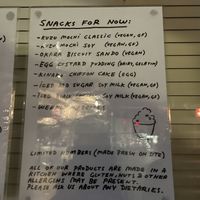 SNACKS FOR NOW:
- KUZU MOCHI CLASSIC (VEGAN, GF)
- KUZU MOCHI SOY (VEGAN, GF)
- OKARA BISCUIT SANDO (VEGAN)
- EGG CUSTARD PUDDING (DAIRY, GELATIN)
- KINAKO CHIFFON CAKE (EGG)
- ICED SUGAR SOY MILK (VEGAN, GF)
- SOY MILK (VEGAN, GF)
- WEE
LIMITED NUMBERS (MADE FRESH ON SITE)
ALL OF OUR PRODUCTS ARE MADE IN A
KITCHEN WHERE GLUTEN, NUTS & OTHER
ALLERGENS MAY BE PRESENT.
PLEASE ASK US ABOUT ANY DIETARIES.